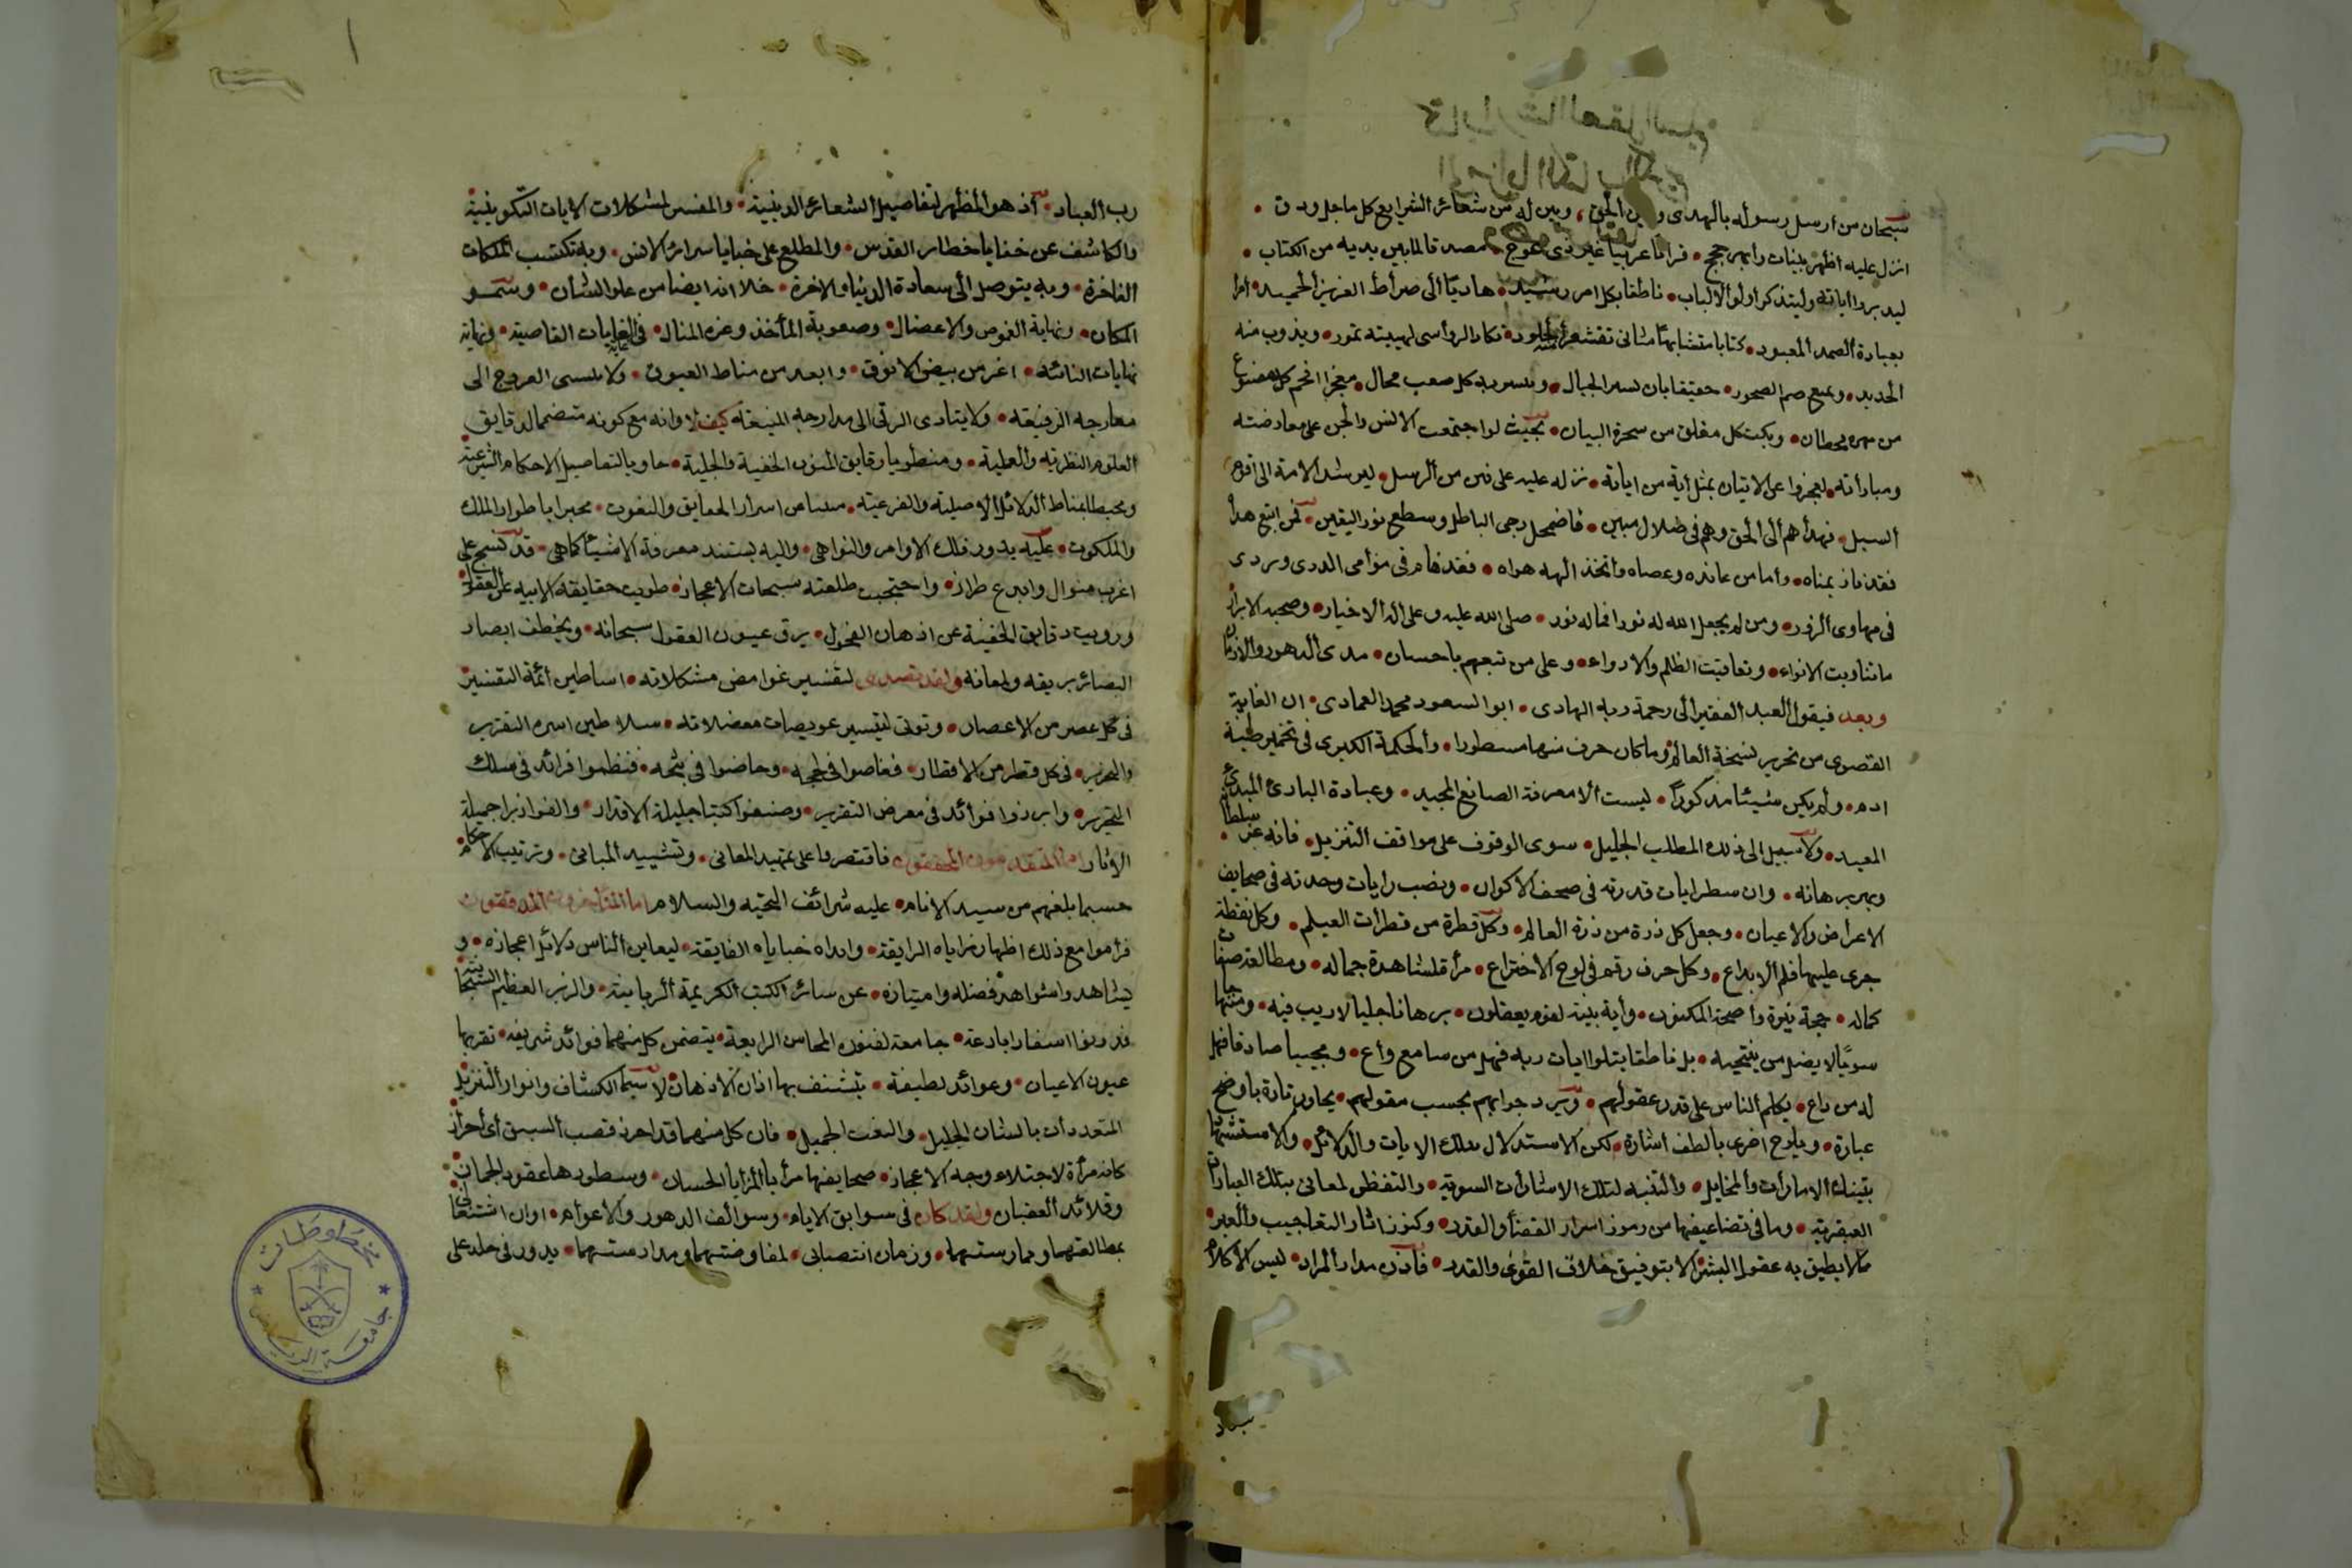 سبحان من ارسل رسوله بالهدى ودين الحق، وبين له من شعائر الشرايع كل ما جل ودق
انزل عليه اظهر بينات وابهر حجج قرانا عربيا غير ذى عوج مصدقا لما بين يديه من الكتاب
ليدبروا اياته وليتذكر اولو الالباب ناطقا بكل امر رشيد هاديا الى صراط العزيز الحميد امرا
بعبادة الصمد المعبود كتابا متشابها مثانى تقشعر منه الجلود تكاد الرواسى لهيبته تمور ويذوب منه
الحديد ويميع صم الصخور حقيقا بان تسير به الجبال وييسر به كل صعب محال معجزا افحم كل مصقع
من مهرة قحطان وبكت كل مفلق من سحرة البيان بحيث لو اجتمعت الانس والجن على معارضته
ومباراته لعجزوا عن الاتيان بمثل اية من اياته نزله عليه على فترة من الرسل ليرشد الامة الى اقوم
السبل فهداهم الى الحق وهم فى ضلال مبين فاضمحل دجى الباطل وسطع نور اليقين فمن اتبع هداه
فقد فاز بمناه واما من عانده وعصاه واتخذ الهه هواه فقد هام فى موامى الردى وتردى
فى مهاوى الزور ومن لم يجعل الله له نورا فماله نور صلى الله عليه وعلى اله الاخيار وصحبه الابرار
ما تناوبت الانواء وتعاقبت الظلم والاضواء وعلى من تبعهم باحسان مدى الدهور والازمان
وبعد فيقول العبد الفقير الى رحمة ربه الهادى ابو السعود محمد العمادى ان الغاية
القصوى من تحرير نسخة العالم وما كان حرف منها مسطورا والحكمة الكبرى فى تخمير طينة
ادم ولم يكن شيئا مذكورا ليست الا معرفة الصانع المجيد وعبادة البارئ المبدئ
المعيد ولا سبيل الى ذلك المطلب الجليل سوى الوقوف على مواقف التنزيل فانه عز سلطانه
وبهر برهانه وان سطر ايات قدرته فى صحف الاكوان ونصب رايات وحدته فى صحايف
الاعراض والاعيان وجعل كل ذرة من ذرة العالم وكل قطرة من قطرات العيلم وكل نقطة
جرى عليها قلم الابداع وكل حرف رقم فى لوح الاختراع مرأة لمشاهدة جماله ومطالعة صفات
كماله حجة نيرة واضحة المكنون واية بينة لقوم يعقلون برهانا جليا لا ريب فيه ومنهاجا
سويا لا يضل من ينتحيه بل ناطقا يتلو ايات ربه فهل من سامع واع ومجيبا صادقا فهل
له من داع يكلم الناس على قدر عقولهم ويرد جوابهم بحسب مقولهم يحاور تارة باوضح
عبارة ويلوح اخرى بالطف اشارة لكن الاستدلال بتلك الايات والدلائل والاستشهاد
بتينك الامارات والمخايل والتنبه لتلك الاشارات السرية والتفطن لمعانى بتلك العبارات
العبقرية وما فى تضاعيفها من رموز اسرار القضا والقدر وكنوز اثار التعاجيب والعبر
مما لا يطيق به عقول البشر الا بتوفيق خلاق القوى والقدر فاذن مدار المراد ليس الا كلام
رب العباد اذ هو المظهر لتفاصيل الشعائر الدينية والمفسر لمشكلات الايات التكوينية
والكاشف عن خفايا خطاير القدس والمطلع على خبايا سرائر الانس وبه تكتسب الملكات
الفاخرة وبه يتوصل الى سعادة الدنيا والاخرة خلا انه ايضا من علو الشان وسمو
المكان ونهاية الغموض والاعضال وصعوبة المأخذ وعزة المنال فى الغايات القاصية ونهاية
نهايات النائية اعز من بيض الانوق وابعد من مناط العيوق ولا يتسنى العروج الى
معارجه الرفيعة ولا يتادى الرقى الى مدارجه المنيعة كيف لا وانه مع كونه متضمنا لدقايق
العلوم النظرية والعملية ومنطويا رقايق الفنون الخفية والجلية حاويا لتفاصيل الاحكام الشرعية
ومحيطا بمناط الدلائل الاصلية والفرعية منبئا عن اسرار الحقايق والنعوت مخبرا باطوار الملك
والملكوت عليه يدور فلك الاوامر والنواهى واليه يستند معرفة الاشيا كما هى قد نسج على
اغرب منوال وابدع طراز واحتجبت طلعته سبحات الاعجاز طويت حقايقه الابية عن العقول
وزويت دقايق الخفية عن اذهان الفحول يرق عيون العقول سبحانه ويخطف ابصار
البصائر بريقه ولمعانه ولقد تصدى لتفسير غوامض مشكلاته اساطين ائمة التفسير
فى كل عصر من الاعصار وتولى لتيسير عويصات معضلاته سلاطين اسرة التقرير
والتحرير فى كل قطر من الاقطار فغاصوا فى لججه وخاضوا فى ثبجه فنظموا فرائد فى سلك
التحرير وابرزوا فوائد فى معرض التقرير وصنفوا كتبا جليلة الاقدار والفوا زبرا جميلة
الاثار اما المتقدمون المحققون فاقتصروا على تمهيد المعانى وتشييد المبانى وترتيب الاحكام
حسبما بلغهم من سيد الانام عليه شرائف التحية والسلام اما المتاخرون المدققون
فراموا مع ذلك اظهار مزاياه الرايقة وابداه خباياه الفايقة ليعاين الناس دلائل اعجازه و
يشاهدوا شواهد فضله وامتيازه عن سائر الكتب الكريمة الربانية والزبر العظيم السبحانية
فدونوا اسفارا بادعة جامعة لفنون المحاسن الرايعة يتضمن كل منهما فوائد شريفة تقر بها
عيون الاعيان وعوائد لطيفة يتشنف بها اذان الاذهان لا سيما الكشاف وانوار التنزيل
المتعددان بالشان الجليل والنعت الجميل فان كل منهما قد احرز قصب السبق اى احراز
كانه مرأة لاجتلاء وجه الاعجاز صحايفهما مرايا المزايا الحسان وسطورها عقود الجمان
وقلائد العقيان ولقد كان فى سوابق الايام وسوالف الدهور والاعوام اوان اشتغالى
بمطالعتهما وممارستهما وزمان انتصابى لمفاوضتهما ومدارستهما يدور فى خلدى على
مخطوطات
جامعة الرياض